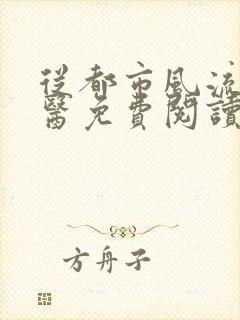 從都市風流
醫免費閱讀
方舟子